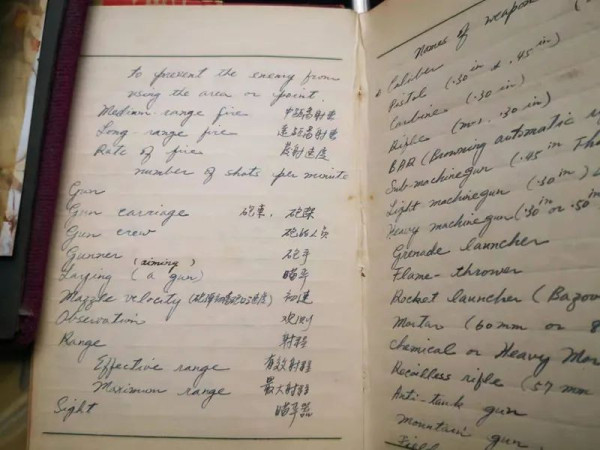 to prevent the enemy from
using the area or point.
Medium range fire
Long range fire
Rate of fire 发射速度
number of shots per minute
Gun
Gun carriage 砲車, 砲架
Gun crew
Gunner 砲手
(aiming)
Laying (a gun) 瞄準
Muzzle velocity 初速
Observation 观测
Range 射程
Effective range 有效射程
Maximum range 最大射程
Sight 瞄準器
Names of weapons
Caliber
Pistol (.30 in & .45 in)
Carbine (.30 in)
Rifle (m1. .30 in)
BAR (Browning automatic
Sub-machinegun (.45 in
Light machinegun (.30 in)
Heavy machinegun (.30 in or .50
Grenade launcher
Flame-thrower
Rocket launcher (Bazoo
Mortar (60 mm or 8
Chemical or Heavy Mor
Recoilless rifle (57 mm
Anti-tank gun
Mountain gun
Field